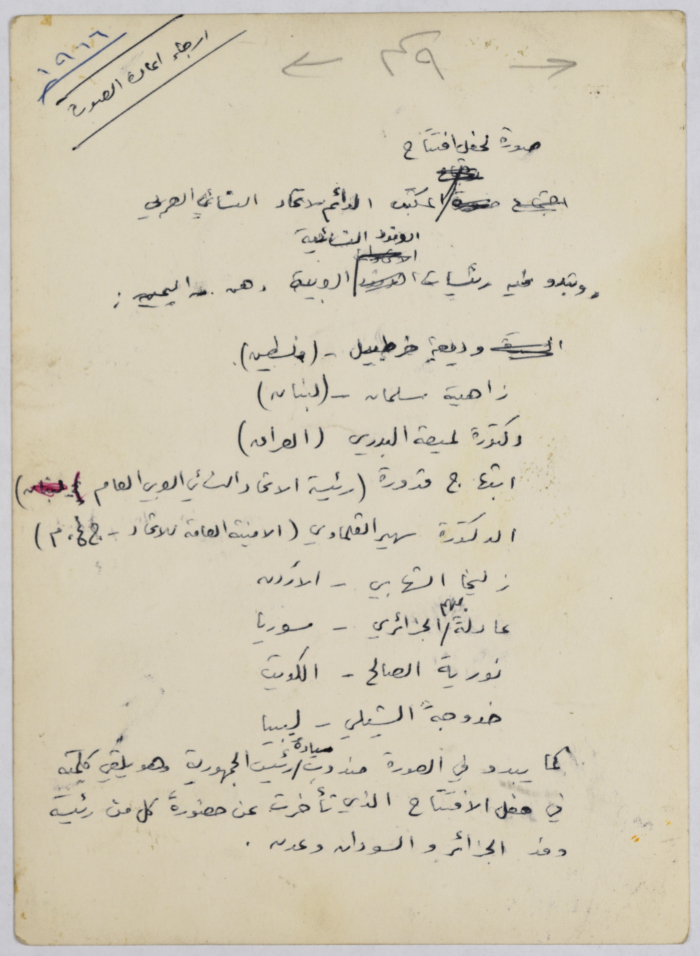 ١٩٦٦
ارجاء اعادة الصورة
صورة لحفل افتتاح
اجتماع المكتب الدائم للاتحاد النسائي العربي
الوفود النسائية
وتبدو فيه رئيسات العربية وهن من اليمين :
السيدة وديعة خرطبيل - (فلسطين)
زاهية سلمان - (لبنان)
دكتورة لميعة البدري (العراق)
ابتهاج قدورة (رئيسة الاتحاد النسائي العربي العام لبنان)
الدكتورة سهير القلماوي (الامينة العامة للاتحاد - ج.ع.م)
زليخا الشهابي - الاردن
عادلة بيهم الجزائري - سوريا
نورية الصالح - الكويت
خدوجة الشبلي - ليبيا
كما يبدو في الصورة مندوب سيادة رئيس الجمهورية وهو يلقي كلمته
في حفل الافتتاح الذي تأخرت عن حضوره كل من رئيسة
وفد الجزائر و السودان وعدن .